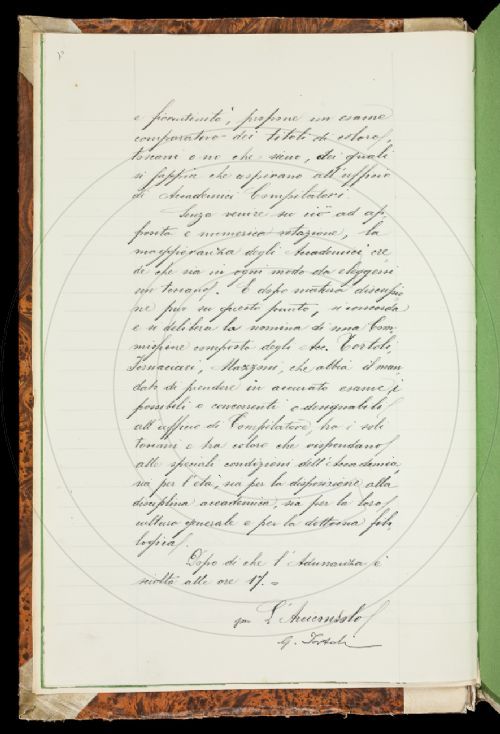 e fiorentinità, propone un esame
comparativo dei titoli di coloro,
toscani o no che sieno, dei quali
si sappia che aspirano all'ufficio
di Accademici Compilatori.
Senza venire su ciò ad ap
posita e numerica votazione, la
maggioranza degli Accademici cre
de che sia in ogni modo da eleggersi
un toscano. E dopo matura discussio
ne pur su questo punto, si concorda
e si delibera la nomina di una Com
missione composta degli Acc. Tortoli,
Fornaciari, Mazzoni, che abbia il man
dato di prendere in accurato esame i
possibili e concorrenti e designabili
all'ufficio di Compilatore, tra i soli
toscani e tra coloro che rispondano
alle speciali condizioni dell'Accademia,
sia per l'età, sia per la disposizione alla
disciplina accademica, sia per la loro
cultura generale e per la dottrina filo
logica.
Dopo di che l'Adunanza è
sciolta alle ore 17. =
L'Arciconsolo
G. Tortoli